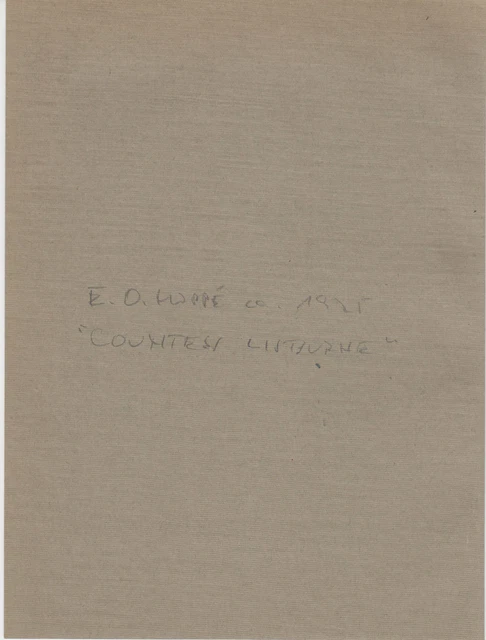 E. O. HOPPÉ ca. 1925
"COUNTESS LISTBURNE"